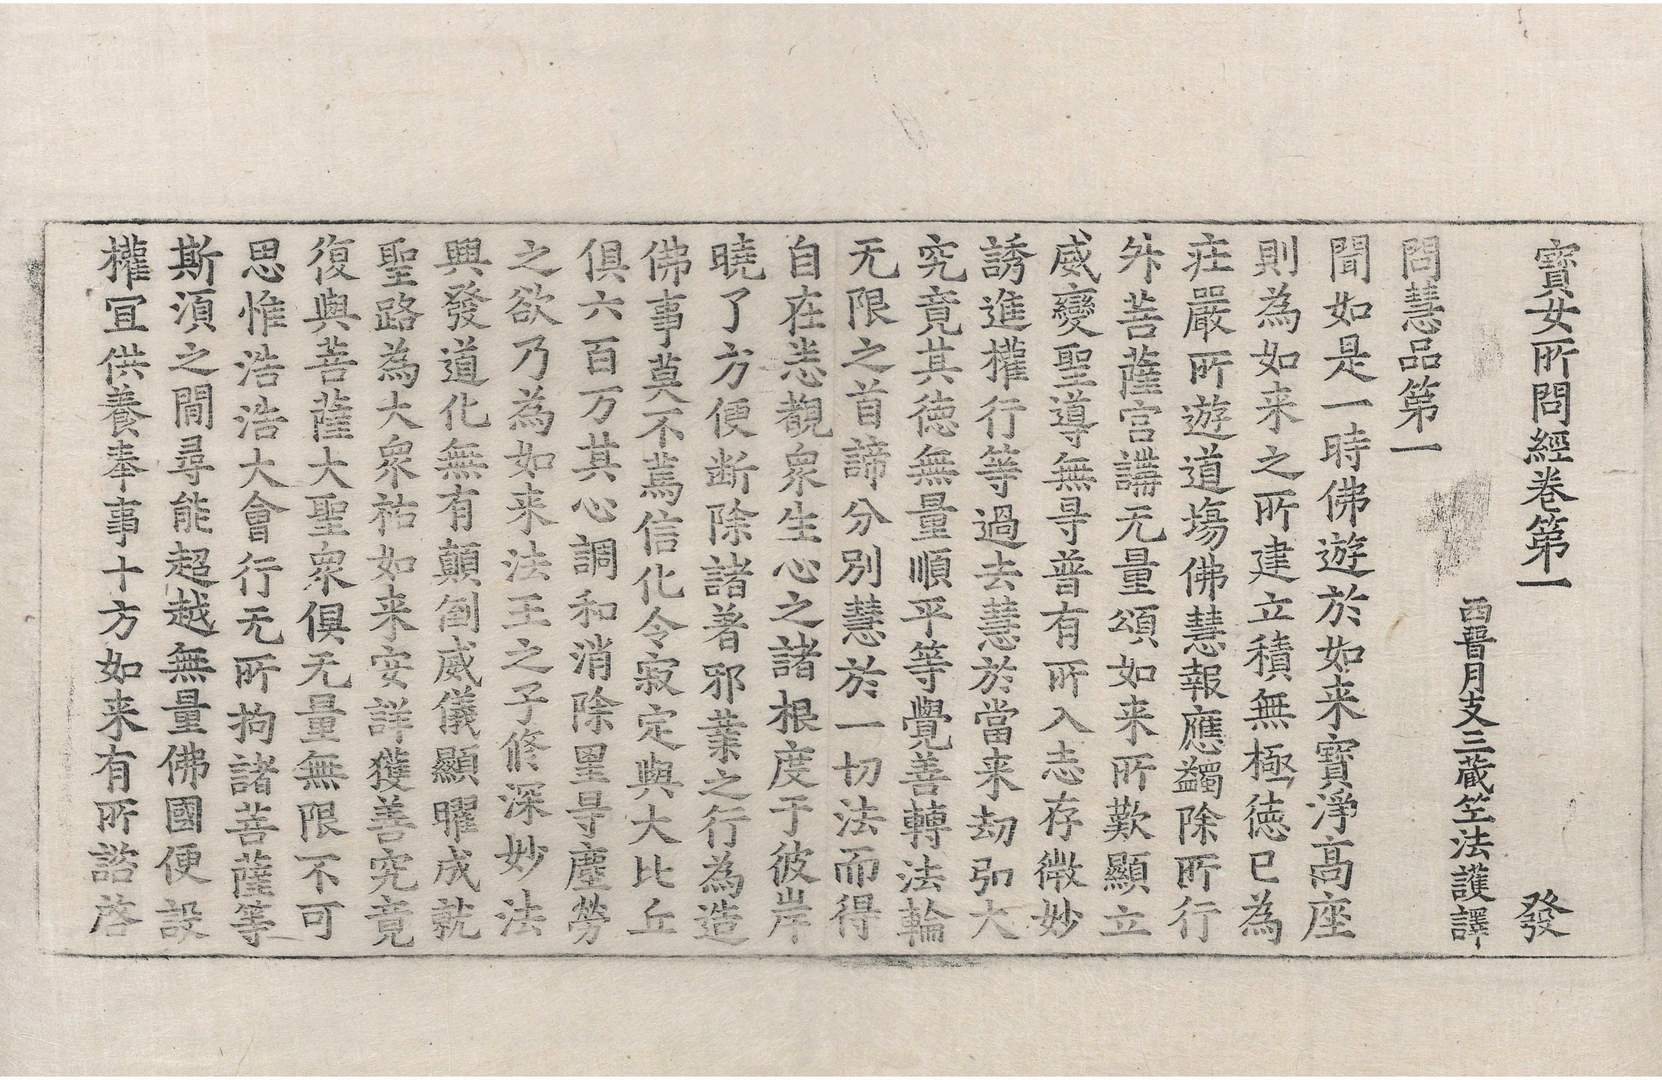 寶女所問經卷第一　發
西晉月支三藏竺法護譯
問慧品第一
聞如是一時佛遊於如来寶淨高座
則為如来之所建立積無極徳已為
莊嚴所遊道場佛慧報應蠲除所行
外菩薩宫講无量頌如来所歎顯立
威變聖導無㝵普有所入志存微妙
誘進權行等過去慧於當来劫弘大
究竟其徳無量順平等覺善轉法輪
无限之首諦分別慧於一切法而得
自在悉觀衆生心之諸根度于彼岸
曉了方便断除諸著邪業之行為造
佛事莫不蔫信化令寂定與大比丘
俱六百万其心調和消除罣㝵塵勞
之欲乃為如来法王之子修深妙法
興發道化無有顛倒威儀顯曜成就
聖路為大衆祐如来安詳獲善究竟
復與菩薩大聖衆俱无量無限不可
思惟浩浩大會行无所拘諸菩薩等
斯湏之閒尋能超越無量佛國便設
權冝供養奉事十方如来有所諮啓